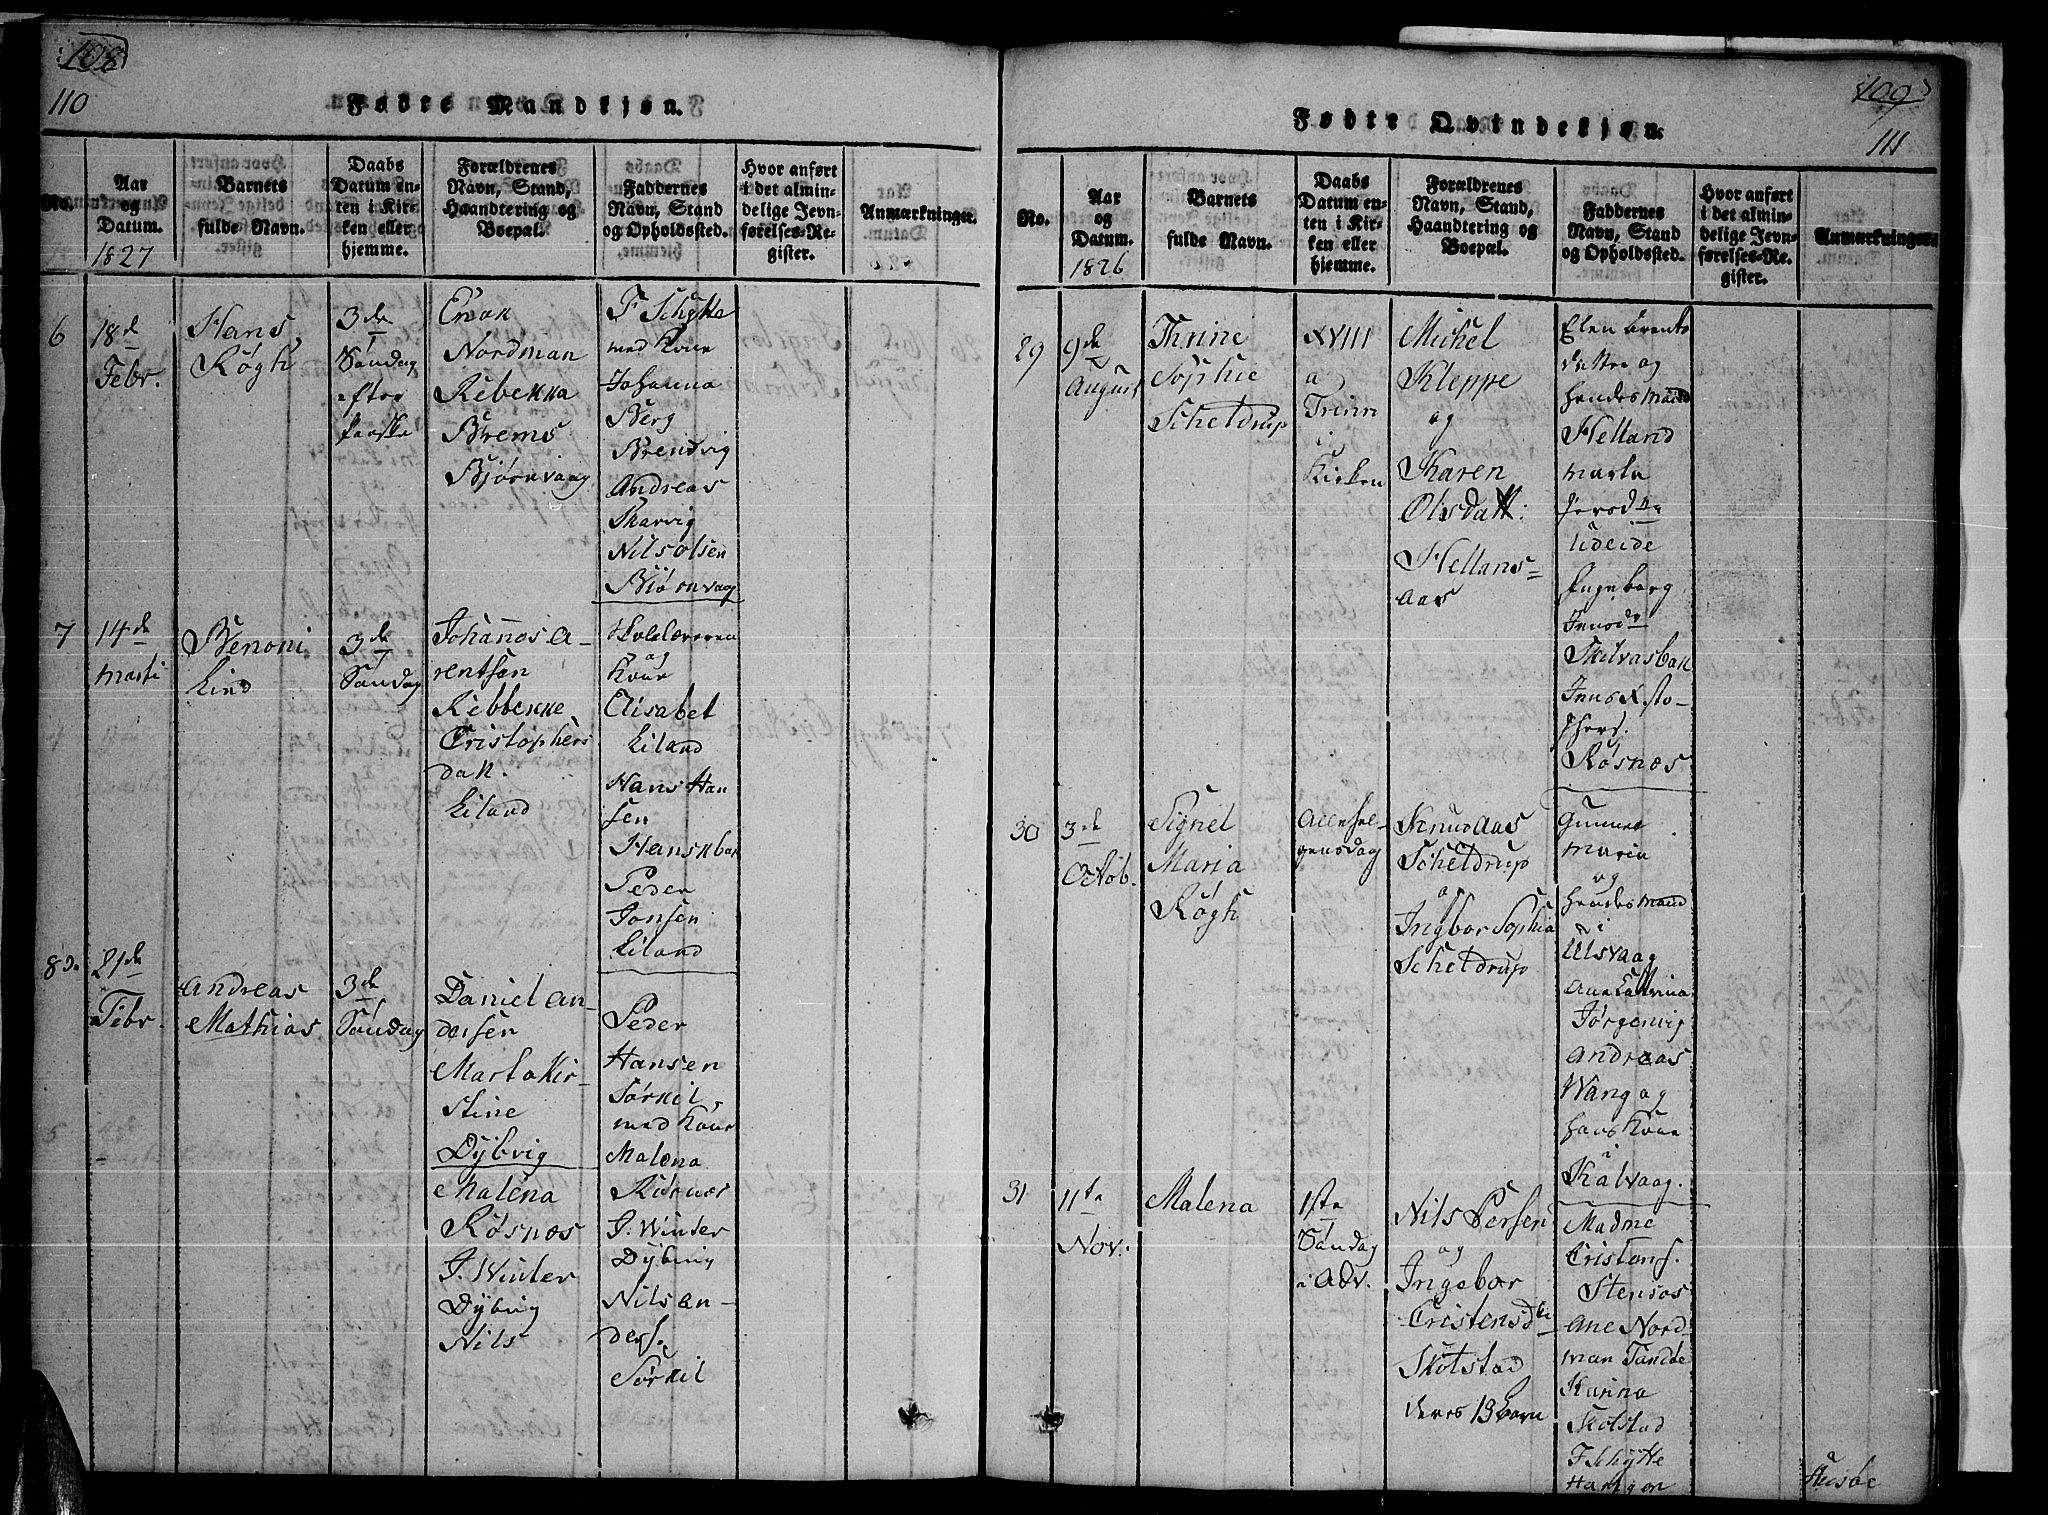 108
110
Fødte Mandkjøn.
No.
Aar
og
Datum.
1827
Barnets
fulde Navn.
Daabs
Datum en-
ten i Kir-
ken eller
hjemme.
Forældrenes
Navn, Stand,
Haandtering og
Boepæl.
Faddernes
Navn, Stand
og Opholdssted.
Hvor anført
i det almin-
delige Jevn-
førelses-Re-
gister.
Anmærkninger.
6
18de
Febr.
Hans
Røgh
3de
Søndag
efter
Paaske
Enok
Nordman
Rebekka
Brems
Bjørnvaag
F Schytte
med Kone
Johanna
Berg
Brendvig
Andreas
Skarvig
Nils Olsen
Biørnvaag
7
14de
Marti
Benoni
Lind
3de
Søndag
Johannes A-
rentsen
Ribbekke
Cristophers
datt.
Liland
og
Kone
Elisabet
Liland
Hans Han
sen
Hanskbak
Peder
Jonsen
Liland
8
21de
Febr.
Andreas
Mathias
3de
Søndag
Daniel An-
dersen
Marta Kir-
stine
Dybvig
Malena
Røsnæs
J. Winter
Dybvig
Nils
Peder
Hansen
Sørkil
med Kone
Malena
Røsnæs
J. Winter
Dybvig
Nils An-
ders.
Sørkil
109
111
Fødte Qvindekjøn.
No.
Aar
og
Datum.
1826
Barnets
fulde Navn.
Daabs
Datum en-
ten i Kir-
ken eller
hjemme.
Forældrenes
Navn, Stand,
Haandtering og
Boepæl.
Faddernes
Navn, Stand
og Opholdssted.
Hvor anført
i det almin-
delige Jevn-
førelses-Re-
gister.
Anmærkninger.
29
9de
August
Thrine
Sophie
Scheldrup
XVIII
a
Trinn
i
Kirken
Michel
Kleppe
og
Karen
Olsdatt:
Hellans-
aas
Elen Arents
datter og
hendes Mand
Helland
Marta
Ingeborg
Jensdr
Skilvasbak
Jens Xsto-
phers.
Røsnæs
30
3de
Octob.
Signel
Maria
Røgh
Allehel-
gensdag
Knud Aas
Scheldrup
og
Ingbor Sophia
Scheldrup
Gunnel
Maria
og
hendes Mand
i
Ulsvaag
Ane Catrina
Jørgenvig
Andreas
Wang og
hans Kone
i
Kalvaag.
31
11te
Nov.
Malena
1ste
Søndag
i Adv.
Nils Persen
og
Ingebor
Cristensdtr
Skotstad
deres 13 Barn
Madme
Cristens.
Stensøs
Ane Nord
man Tandøe
Karina
Skotstad
F Schytte